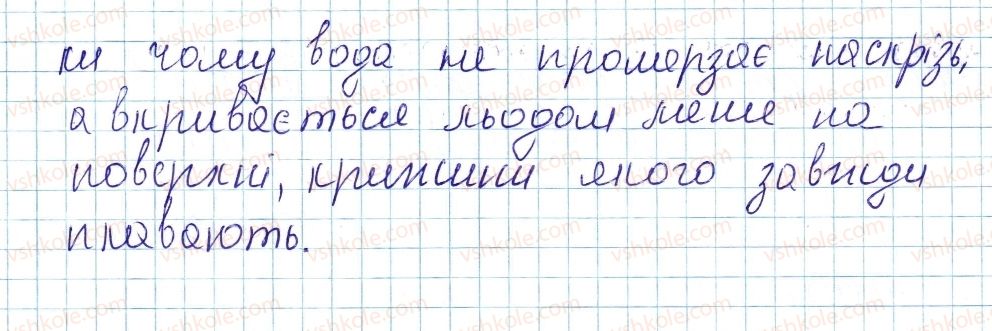 ки чому вода не промерзає наскрізь,
а вкривається льодом лише на
поверхні, крижини якого завжди
плавають.